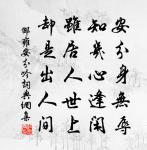 安分身無辱
知幾心逢閑
雖居人世上
却是出人間
邵雍安分吟詞典網集